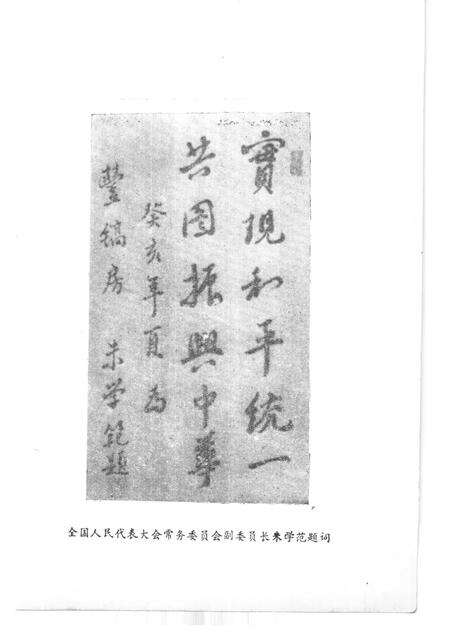 實現和平統一
共圖振興中華
癸亥年夏為
豐鎬房 朱学範題
全国人民代表大会常务委员会副委员长朱学范题词